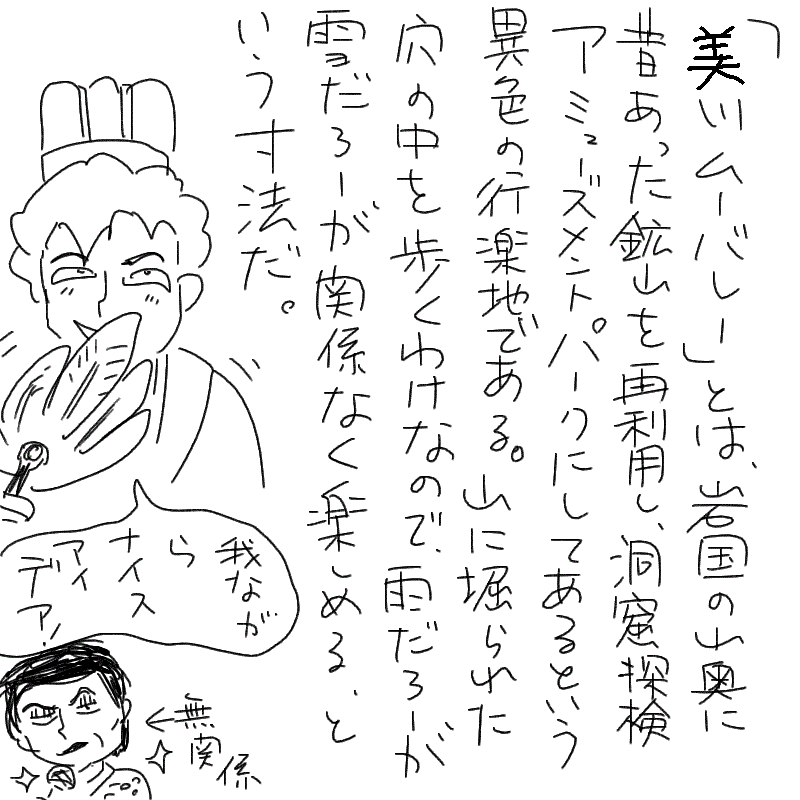 「美川ムーバレー」とは、岩国の山奥に
昔あった鉱山を再利用し、洞窟探検
アミューズメントパークにしてあるという
異色の行楽地である。山に堀られた
穴の中を歩くわけなので、雨だろーが
雪だろーが関係なく楽しめる、と
いう寸法だ。
我なが
ら
ナイス
アイ
デア!
←無関係